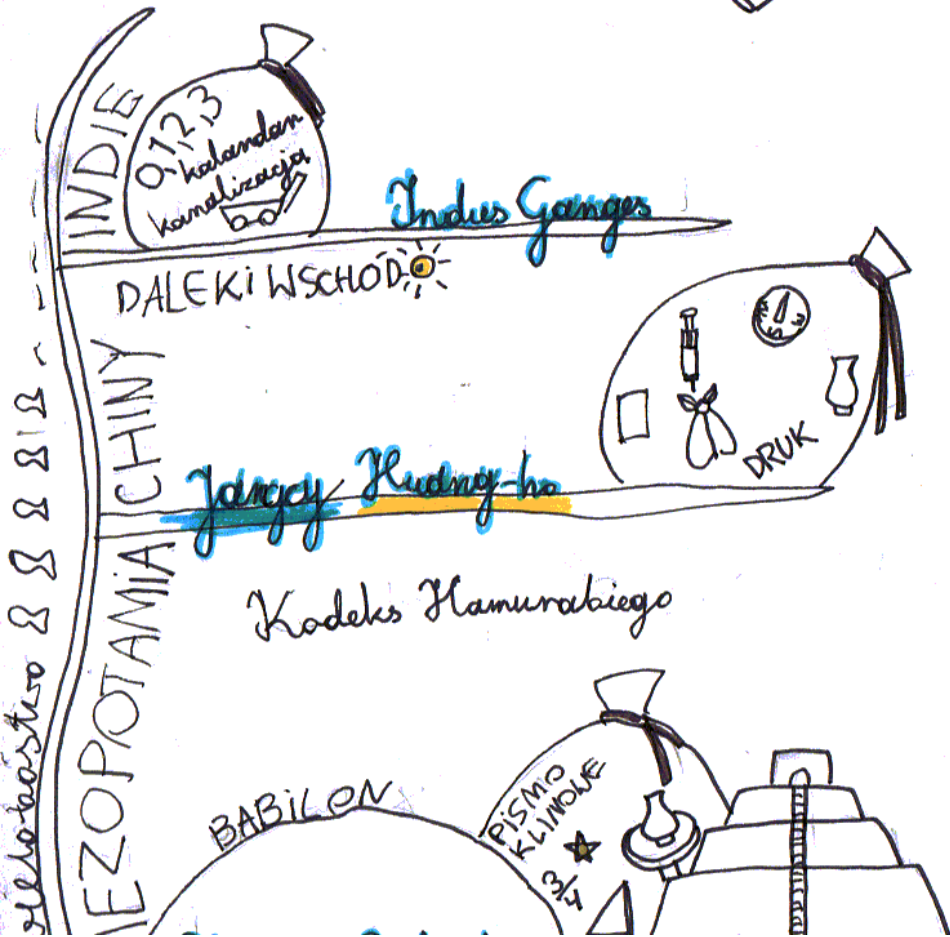 INDIE
0,1,2,3
kalandan
kanalizacja
Indus Ganges
DALEKI WSCHÓD
CHINY
DRUK
Jangcy Huang-ho
MEZOPOTAMIA
Kodeks Hamurabiego
wielobóstwo
BABILON
PISMO
KLINOWE
3/4